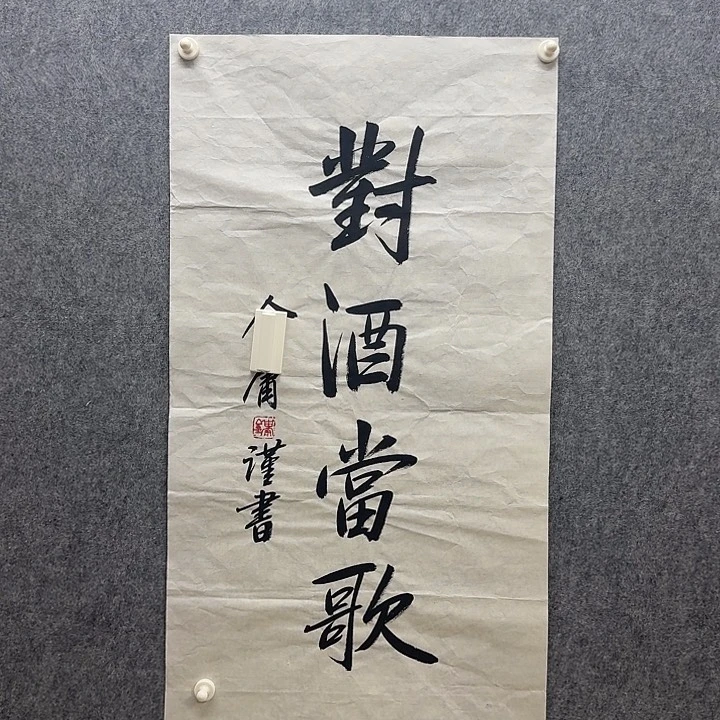 對酒當歌
謹書